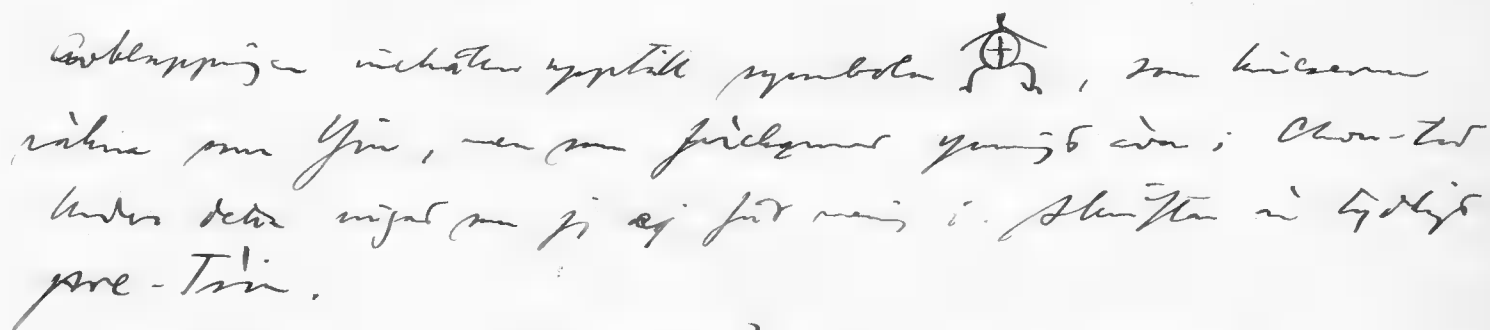 innehåller upptill symbolen, som kineserna
räkna som Yin, men som förekommer ymnigt även i Chou-tid
Under detta något som jag ej får mening i. Skriften är tydligt
pre-Ts'in.